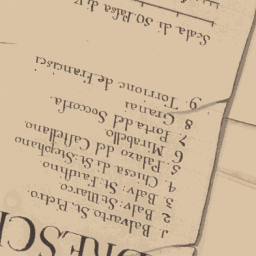 BRESCI
1. Balvarto St. Pietro.
2. Balv: St: Marco.
3. Balv: St: Faustino.
4. Chiesa di St: Stephano
5. Palazo del Castellano.
6. Mirabello.
7. Porta del Soccorsa.
8.
9. Torrione de Francisci
Scala di 50. Passa di V